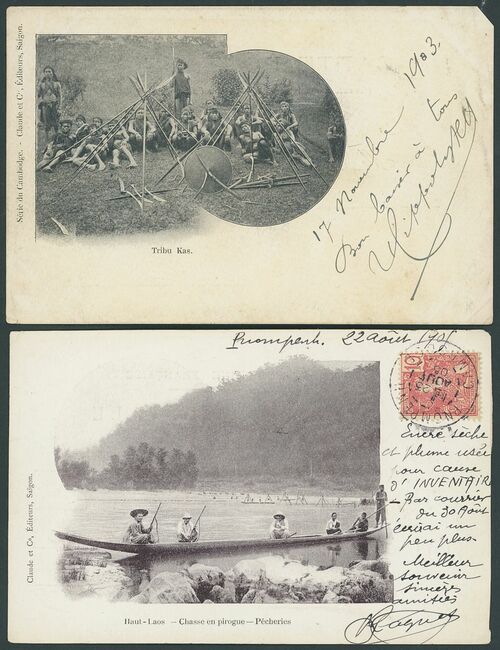 Série du Cambodge. - Claude et Cie, Éditeurs, Saigon.
Tribu Kas.
17 Novembre 1903
Bon baiser à tous
Hippolyte
Pnompenh. 22 Août 190
Encre sèche
et plume usée
pour cause
d'INVENTAIR
- Par courrier
du 30 Août
écrirai un
peu plus.
Meilleur
souvenir
sincères
amitiés
Claude et Cie, Éditeurs, Saigon.
Haut-Laos — Chasse en pirogue — Pêcheries